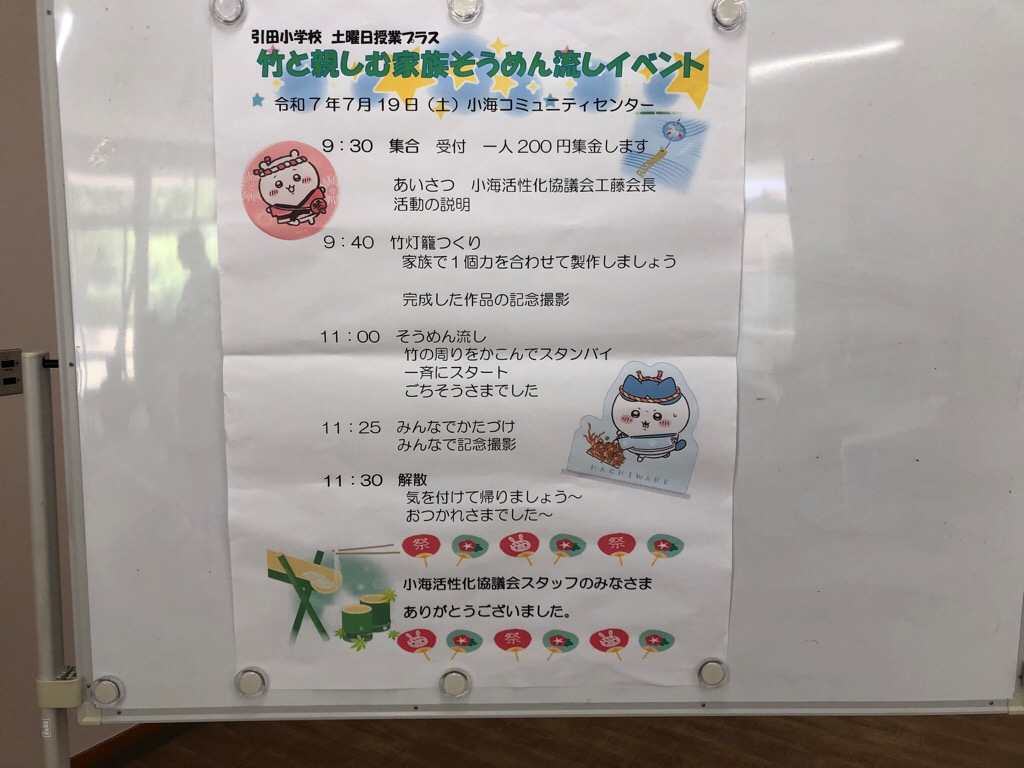 引田小学校 土曜日授業プラス
竹と親しむ家族そうめん流しイベント
令和7年7月19日（土）小海コミュニティセンター
9：30 集合 受付 一人200円集金します
あいさつ 小海活性化協議会工藤会長
活動の説明
9：40 竹灯籠つくり
家族で1個力を合わせて製作しましょう
完成した作品の記念撮影
11：00 そうめん流し
竹の周りをかこんでスタンバイ
一斉にスタート
ごちそうさまでした
11：25 みんなでかたづけ
みんなで記念撮影
HACHIWARE
11：30 解散
気を付けて帰りましょう～
おつかれさまでした～
祭 祭
小海活性化協議会スタッフのみなさま
ありがとうございました。
祭